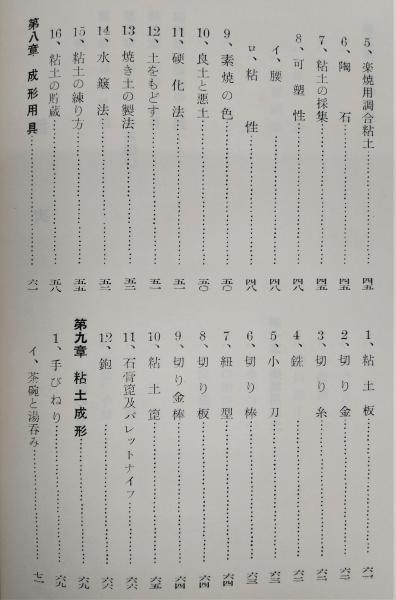 5、楽焼用調合粘土……四五
6、陶石……四五
7、粘土の採集……四五
8、可塑性……四八
イ、腰……四八
ロ、粘性……四八
9、素焼の色……五〇
10、良土と悪土……五〇
11、硬化法……五一
12、土をもどす……五一
13、焼き土の製法……五二
14、水簸法……五三
15、粘土の練り方……五五
16、粘土の貯蔵……五八
第八章 成形用具……六一
1、粘土板……六一
2、切り金……六二
3、切り糸……六二
4、銑……六二
5、小刀……六三
6、切り棒……六三
7、紐型……六四
8、切り板……六四
9、切り金棒……六四
10、粘土箆……六五
11、石膏箆及パレットナイフ……六六
12、鉋……六六
第九章 粘土成形……六九
1、手びねり……六九
イ、茶碗と湯呑み……七一